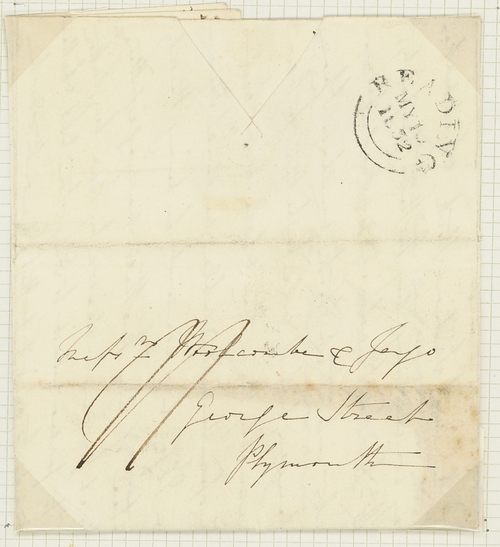 READING
MY 1
1832
Messrs Whitcombe & Jago
George Street
Plymouth